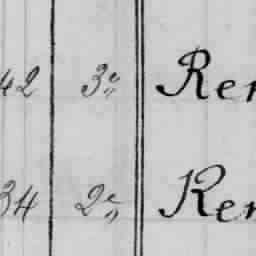 42 3e Ren
34 2e Ren